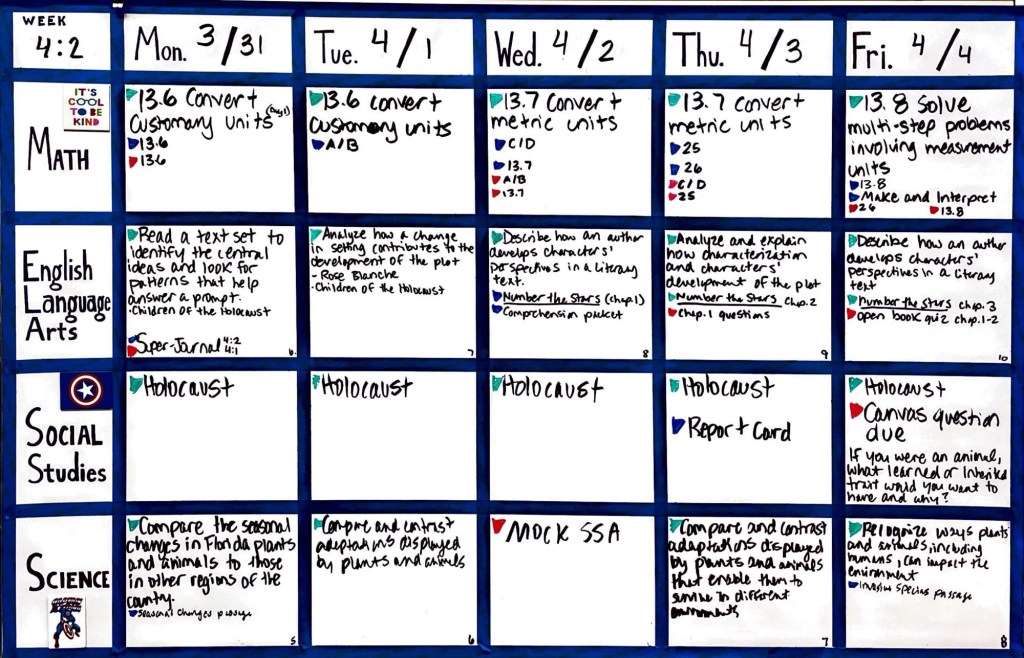 WEEK
4:2
Mon. 3/31
Tue. 4/1
Wed. 4/2
Thu. 4/3
Fri. 4/4
IT'S
COOL
TO BE
KIND
MATH
13.6 Convert
Customary units (Day 1)
13.6
13.6
13.6 convert
customary units
A/B
13.7 Convert
metric units
C/D
13.7
A/B
13.7
13.7 convert
metric units
25
26
C/D
25
13.8 Solve
multi-step problems
involving measurement
units
13.8
Make and Interpret
26 13.8
English
Language
Arts
Read a text set to
identify the central
ideas and look for
patterns that help
answer a prompt.
-Children of the Holocaust
Super-Journal 4:2
4:1
6
Analyze how a change
in setting contributes to the
development of the plot
- Rose Blanche
-Children of the Holocaust
7
Describe how an author
develops characters'
perspectives in a literary
text.
Number the Stars (chap.1)
Comprehension packet
8
Analyze and explain
how characterization
and characters'
development of the plot
Number the Stars chap. 2
Chap. 1 questions
9
Describe how an author
develops characters'
perspectives in a literary
text
number the stars chap. 3
open book quiz chap. 1-2
10
SOCIAL
Studies
Holocaust
Holocaust
Holocaust
Holocaust
Report Card
Holocaust
Canvas question
due
If you were an animal,
what learned or inherited
trait would you want to
have and why?
SCIENCE
Compare the seasonal
changes in Florida plants
and animals to those
in other regions of the
county.
seasonal changes passage
5
Compare and contrast
adaptations displayed
by plants and animals
6
MOCK SSA
Compare and contrast
adaptations displayed
by plants and animals
that enable them to
survive in different
environments
7
Recognize ways plants
and animals, including
humans, can impact the
environment
Invasive species passage
8